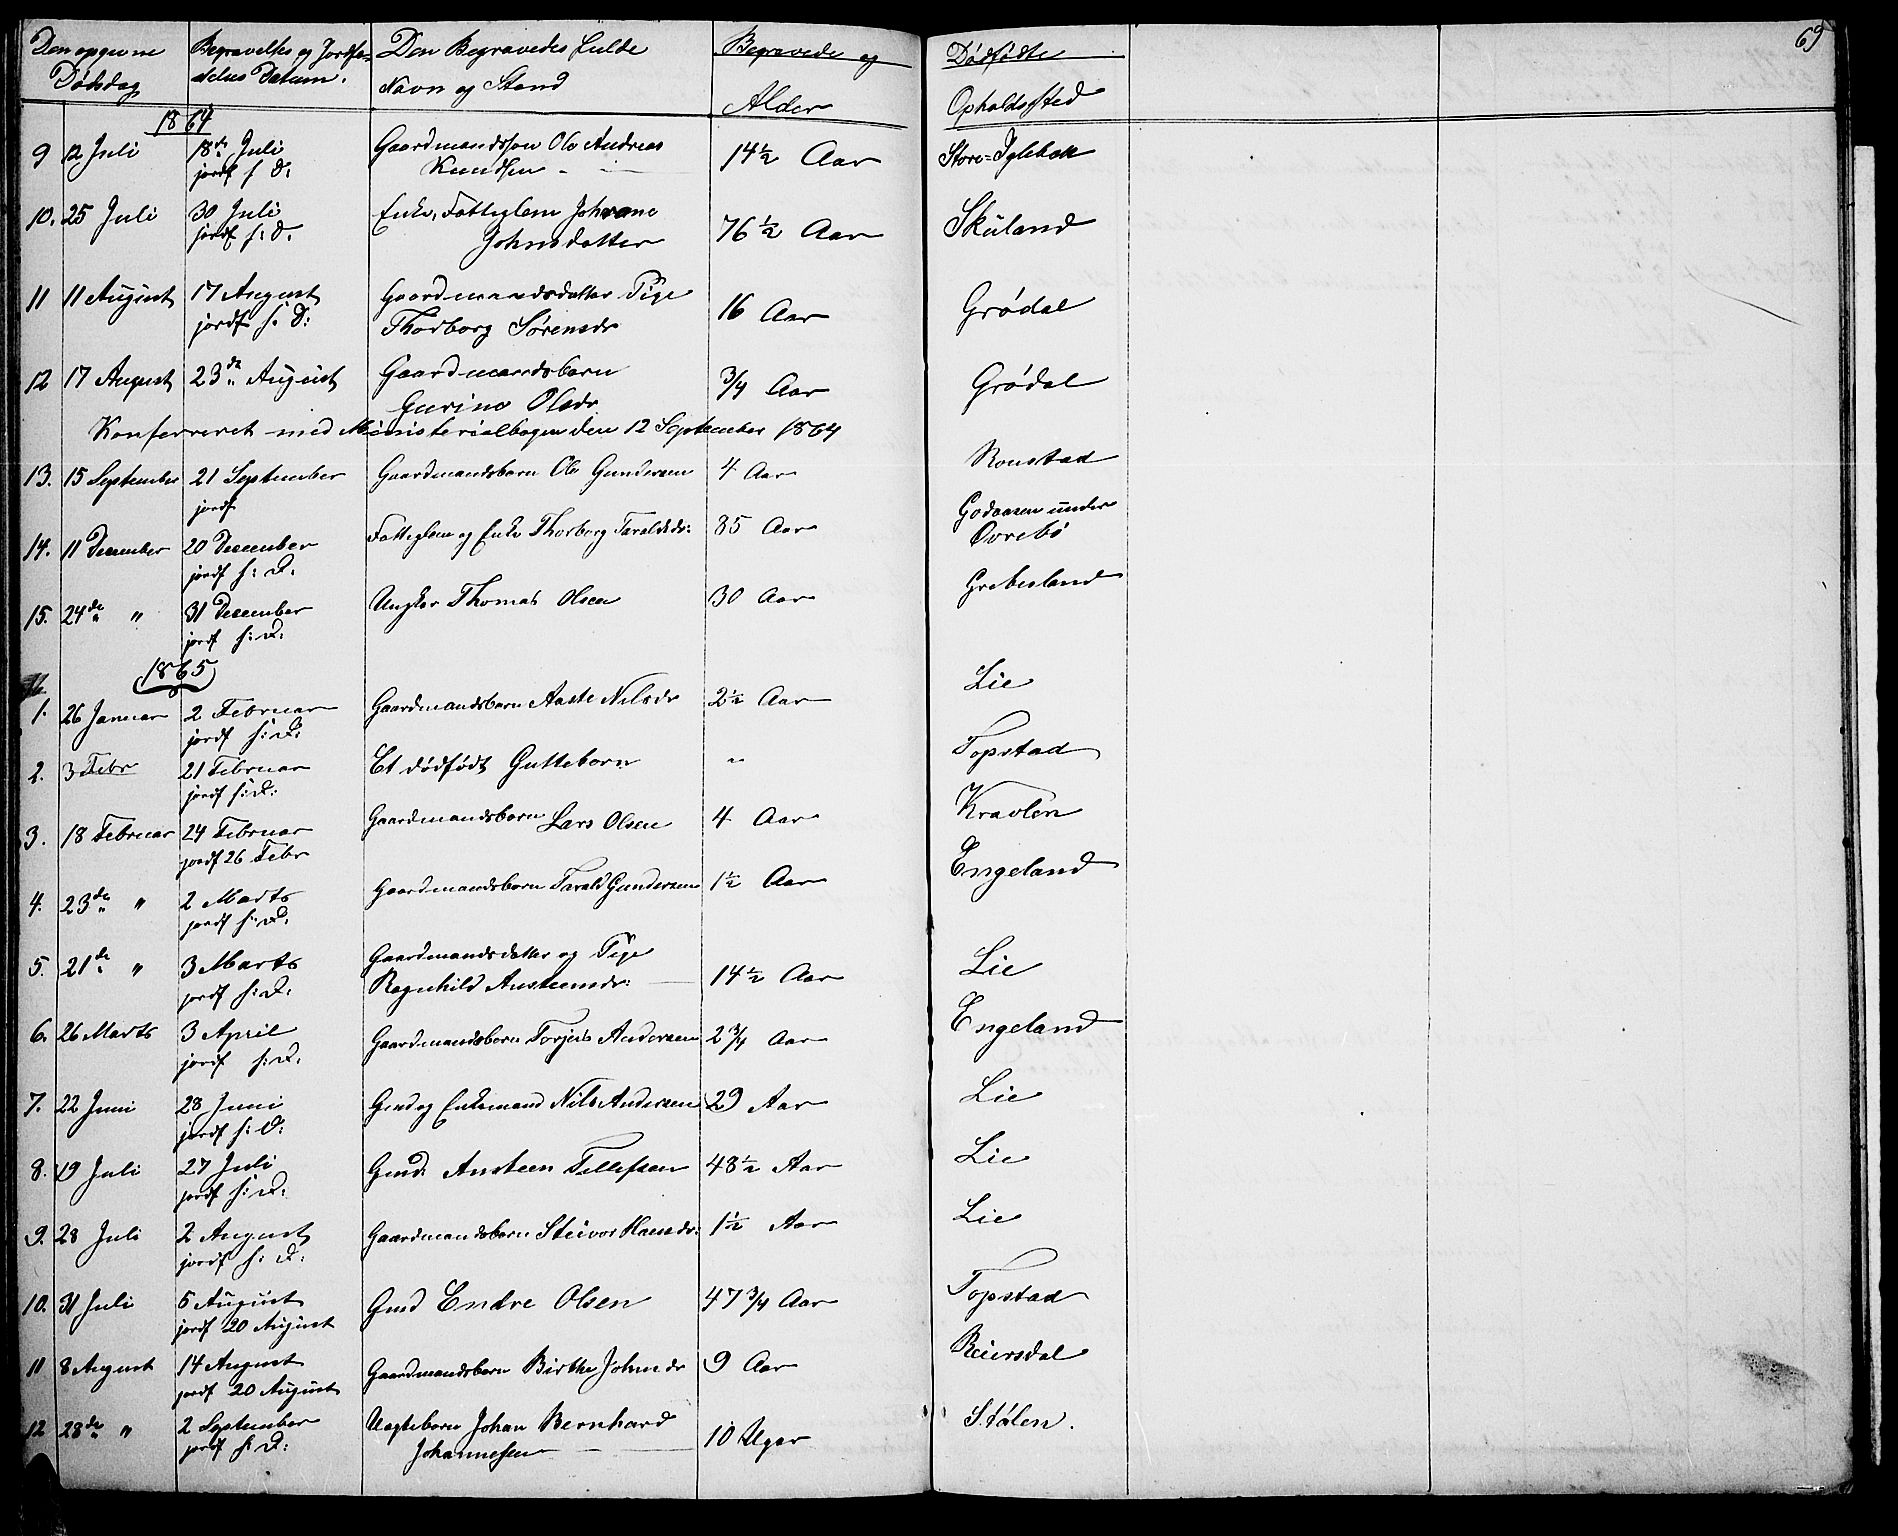 Den opgivne Begravelses og Jordfæ- Den Begravedes fulde Begravede og Dødfødte 69
Dødsdag delses Datum. Navn og Stand Alder Opholdssted
1864
9 12 Juli 18de Juli Gaardmandssøn Ole Andreas 14½ Aar Store=Iglebæk
jordf s. D: Knudsen -
10. 25 Juli 30 Juli Enke, Fattiglem Johanne 76½ Aar Skuland
jordf s: D. Johnsdatter
11 11 August 17 August Gaardmandsdatter Pige 16 Aar Grødal
jordf s. D: Thorborg Sørensdr
12 17 August 23de August Gaardmandsbarn 3/4 Aar Grødal
Gurine Olsdr
Konfereret med Ministerialbogen den 12 September 1864
13. 15 September 21 September Gaardmandsbarn Ole Gundersen 4 Aar Ronstad
jordf
14. 11 December 20 December Fattiglem og Enke Thorborg Taraldsdr: 85 Aar Godaasen under
jordf s: D: Øvrebø
15. 24de " 31 December Ungkar Thomas Olsen 30 Aar Grebesland
jordf s: D:
1865
1. 26 Januar 2 Februar Gaardmandsbarn Aaste Nilsdr 2½ Aar Lie
jordf s: D:
2. 3 Febr 21 Februar Et dødfødt Guttebarn " Topstad
jordf s: D:
3. 18 Februar 24 Februar Gaardmandsbarn Lars Olsen 4 Aar Kravlen
jordf 26 Febr
4. 23de " 2 Marts Gaardmandsbarn Tarald Gundersen 1½ Aar Engeland
jordf s: D:
5. 21de " 3 Marts Gaardmandsdatter og Pige
jordf s: D: Ragnhild Austeensdr: 14½ Aar Lie
6. 26 Marts 3 April Gaardmandsbarn Torjus Andersen 2 3/4 Aar Engeland
jordf s: D.
7. 22 Juni 28 Juni Gmd og Enkemand Nils Andersen 29 Aar Lie
jordf s: D:
8. 19 Juli 27 Juli Gmd. Austeen Tellefsen 48½ Aar Lie
jordf s: D:
9. 28 Juli 2 August Gaardmandsbarn Steivor Hansdr: 1½ Aar Lie
jordf s: D:
10. 31 Juli 6 August Gmd Endre Olsen 47 3/4 Aar Topstad
jordf 20 August
11 8 August 14 August Gaardmandsbarn Birthe Johnsdr 9 Aar Reiersdal
jordf 20 August
12 28de " 2 September Uægtebarn Johan Bernhard 10 Uger Stølen.
jordf s: D: Johannessen